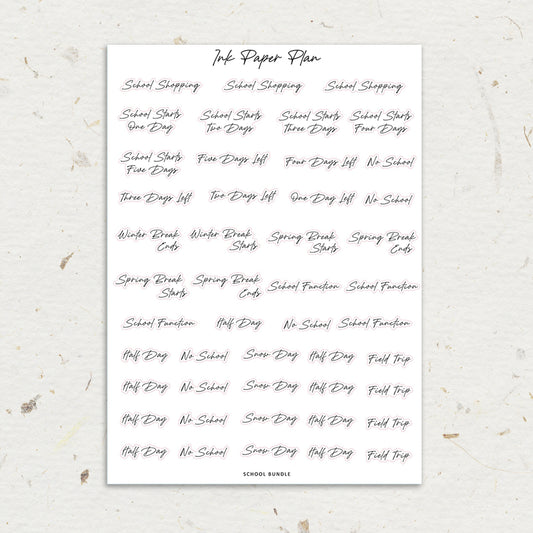 Ink Paper Plan
School Shopping School Shopping School Shopping
School Starts School Starts School Starts School Starts
One Day Two Days Three Days Four Days
School Starts Five Days Left Four Days Left No School
Five Days
Three Days Left Two Days Left One Day Left No School
Winter Break Winter Break Spring Break Spring Break
Ends Starts Starts Ends
Spring Break Spring Break School Function School Function
Starts Ends
School Function Half Day No School School Function
Half Day No School Snow Day Half Day Field Trip
Half Day No School Snow Day Half Day Field Trip
Half Day No School Snow Day Half Day Field Trip
Half Day No School Snow Day Half Day Field Trip
SCHOOL BUNDLE